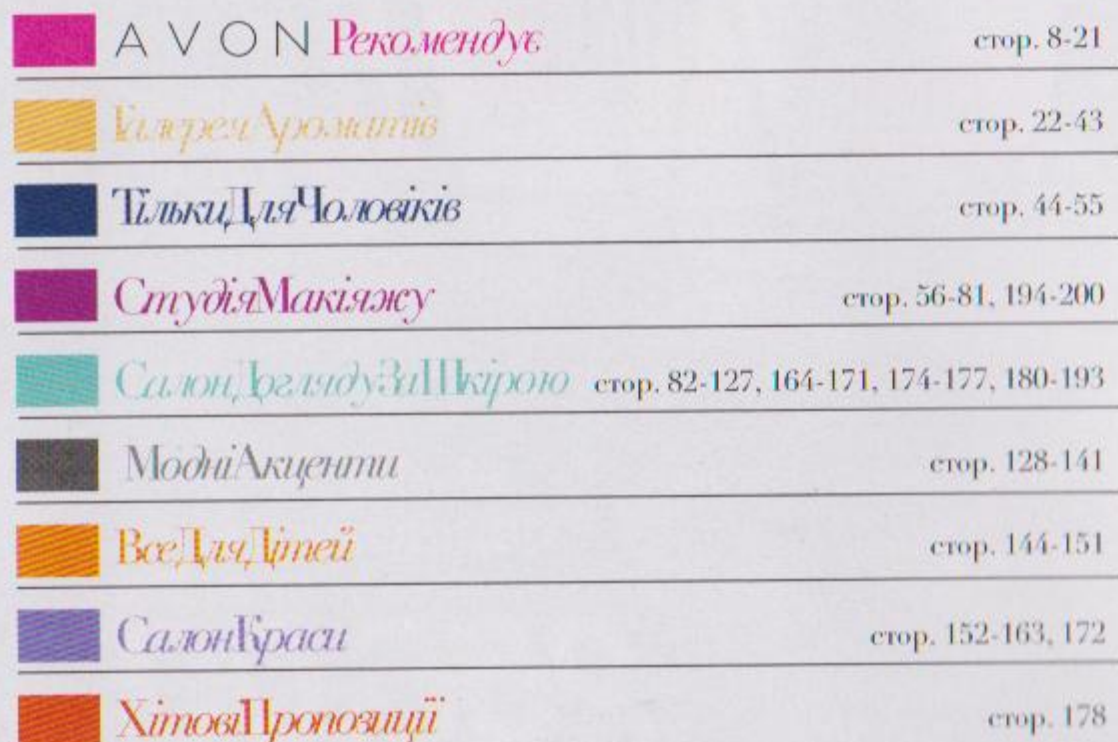 AVON Рекомендує стор. 8-21
ГалереяАроматів стор. 22-43
ТількиДляЧоловіків стор. 44-55
СтудіяМакіяжу стор. 56-81, 194-200
СалонДоглядуЗаШкірою стор. 82-127, 164-171, 174-177, 180-193
МодніАкценти стор. 128-141
ВсеДляДітей стор. 144-151
СалонКраси стор. 152-163, 172
ХітовіПропозиції стор. 178